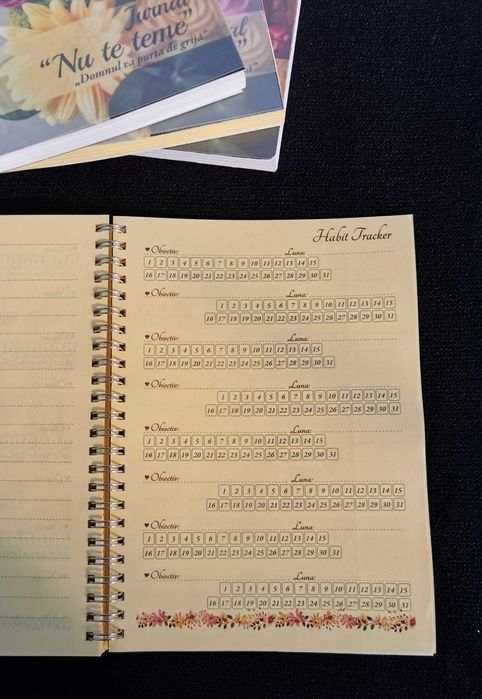 Jurnal
"Nu te teme"
„Domnul va purta de grijă”
Habit Tracker
♥Obiectiv: Luna:
1 2 3 4 5 6 7 8 9 10 11 12 13 14 15
16 17 18 19 20 21 22 23 24 25 26 27 28 29 30 31
♥Obiectiv: Luna:
1 2 3 4 5 6 7 8 9 10 11 12 13 14 15
16 17 18 19 20 21 22 23 24 25 26 27 28 29 30 31
♥Obiectiv: Luna:
1 2 3 4 5 6 7 8 9 10 11 12 13 14 15
16 17 18 19 20 21 22 23 24 25 26 27 28 29 30 31
♥Obiectiv: Luna:
1 2 3 4 5 6 7 8 9 10 11 12 13 14 15
16 17 18 19 20 21 22 23 24 25 26 27 28 29 30 31
♥Obiectiv: Luna:
1 2 3 4 5 6 7 8 9 10 11 12 13 14 15
16 17 18 19 20 21 22 23 24 25 26 27 28 29 30 31
♥Obiectiv: Luna:
1 2 3 4 5 6 7 8 9 10 11 12 13 14 15
16 17 18 19 20 21 22 23 24 25 26 27 28 29 30 31
♥Obiectiv: Luna:
1 2 3 4 5 6 7 8 9 10 11 12 13 14 15
16 17 18 19 20 21 22 23 24 25 26 27 28 29 30 31
♥Obiectiv: Luna:
1 2 3 4 5 6 7 8 9 10 11 12 13 14 15
16 17 18 19 20 21 22 23 24 25 26 27 28 29 30 31